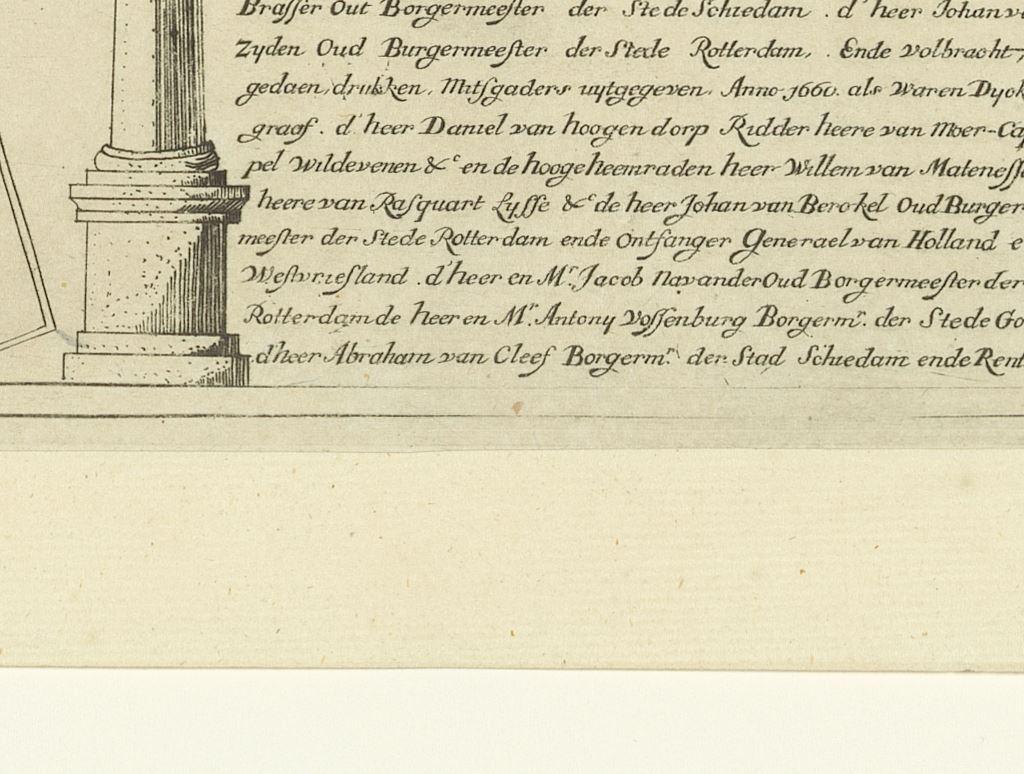 Brasser Out Borgermeester der Stede Schiedam . d' heer Johan v
Zyden Oud Burgermeester der Stede Rotterdam, . Ende volbracht,
gedaen, drukken, Mitsgaders uytgegeven. Anno 1660. als Waren Dyck
graaf . d' heer Daniel van hoogendorp Ridder heere van Moer-Cap
pel Wildevenen &c en de hooge heemraden heer Willem van Matenesse
heere van Rasquart Lysse &c de heer Johan van Berckel Oud Burger
meester der Stede Rotterdam ende Ontfanger Generael van Holland e
Westvriesland . d'heer en Mr. Jacob Navander Oud Borgermeester der
Rotterdam de heer en Mr. Antony Vossenburg Borgermr. der Stede Go
d'heer Abraham van Cleef Borgermr. der Stad Schiedam ende Rent